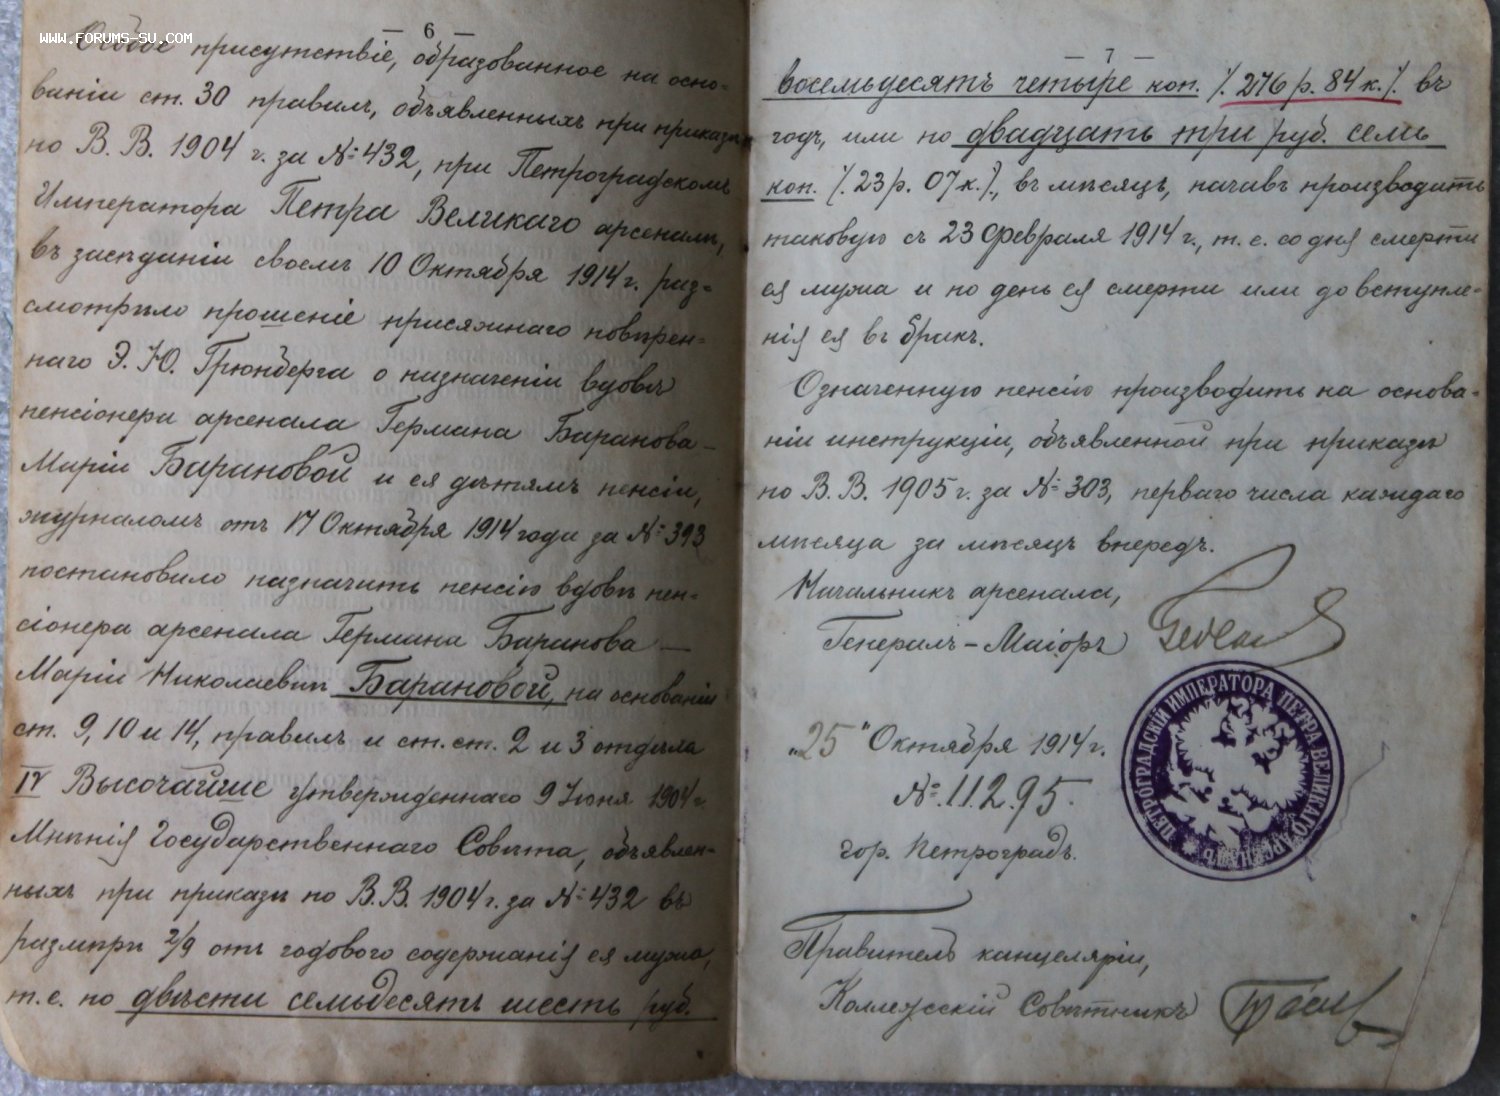 www.forums-su.com
— 6 —
Особое присутствіе, образованное на осно=
ваніи ст. 30 правилъ, объявленныхъ при приказѣ
по В. В. 1904 г. за № 432, при Петроградскомъ
Императора Петра Великаго арсеналѣ,
въ засѣданіи своемъ 10 Октября 1914 г. раз=
смотрѣло прошеніе присяжнаго повѣрен=
наго Э. Ю. Грюнберга о назначеніи вдовѣ
пенсіонера арсенала Германа Баранова —
Маріи Барановой и ея дѣтямъ пенсіи,
журналомъ отъ 17 Октября 1914 года за № 393
постановило назначить пенсію вдовѣ пен=
сіонера арсенала Германа Баранова —
Маріи Николаевнѣ Барановой, на основаніи
ст. 9, 10 и 14, правилъ и ст. ст. 2 и 3 отдѣла
IV Высочайше утвержденнаго 9 Іюня 1904 г.
Мнѣнія Государственнаго Совѣта, объявлен=
ныхъ при приказѣ по В. В. 1904 г. за № 432 въ
размѣрѣ 2/9 отъ годового содержанія ея мужа,
т. е. по двѣсти семьдесятъ шесть руб.
— 7 —
восемьдесятъ четыре коп. /. 276 р. 84 к. /. въ
годъ, или по двадцать три руб. семь
коп. /. 23 р. 07 к. /., въ мѣсяцъ, начавъ производить
таковую съ 23 Февраля 1914 г., т. е. со дня смерти
ея мужа и по день ея смерти или до вступле=
нія ея въ бракъ.
Означенную пенсію производить на основа=
ніи инструкціи, объявленной при приказѣ
по В. В. 1905 г. за № 303, перваго числа каждаго
мѣсяца за мѣсяцъ впередъ.
Начальникъ арсенала,
Генералъ – Маіоръ
ПЕТРОГРАДСКІЙ ИМПЕРАТОРА ПЕТРА ВЕЛИКАГО АРСЕНАЛЪ
„25" Октября 1914 г.
№ 11295.
гор. Петроградъ.
Правитель канцеляріи,
Коллежскій Совѣтникъ